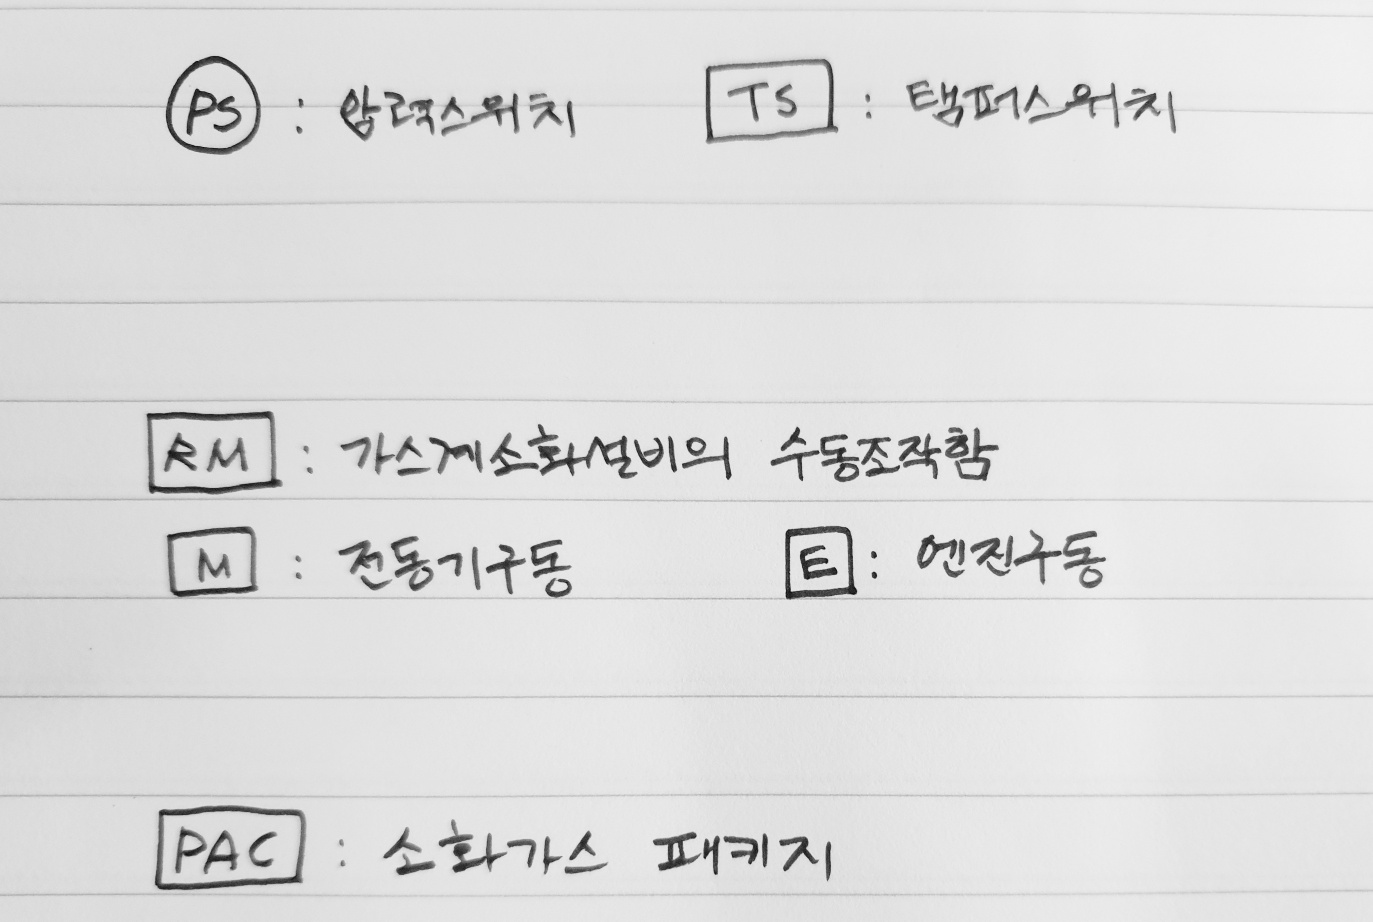 PS : 압력스위치 TS : 탬퍼스위치
RM : 가스계소화설비의 수동조작함
M : 전동기구동 E : 엔진구동
PAC : 소화가스 패키지